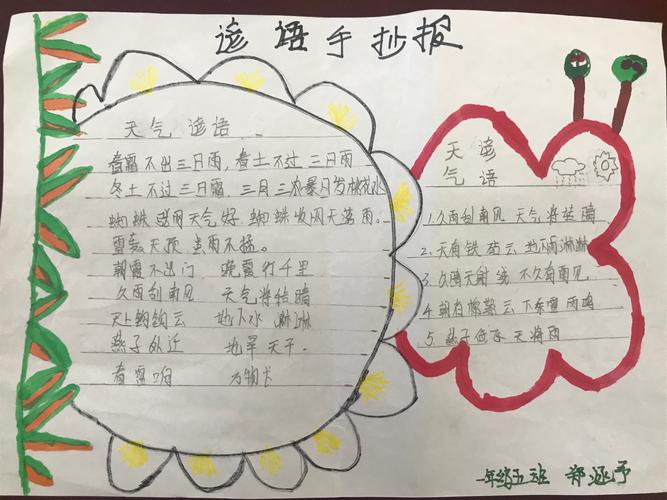 谚语手抄报
天气 谚语
春霜不出三日雨,春土不过三日雨
冬土不过三日霜,三月三 暴日发桃花水
蜘蛛 网天气好 蜘蛛收网天落雨。
雷轰天顶 虽雨不猛。
朝霞不出门 晚霞行千里
久雨刮南风 天气将转晴
天上钩钩云 地下水淋淋
燕子 近 地旱天干
春雷响 万物长
天谚
气语
1.久雨刮南风 天气将转晴
2.天有铁砧云 地下雨淋淋
3.久晴天射线 不久有雨见
4.朝有棉絮云 下午雷雨鸣
5.燕子低飞 天将雨
一年级五班 郑涵予